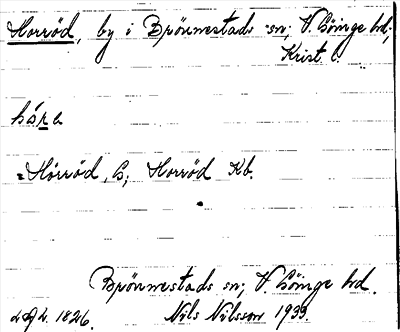 Horröd, by i Brönnestads sn; V. Göinge hd;
Krist. l.
hóra
Hörröd, G; Horröd Kb.
Brönnestads sn; V. Göinge hd.
1826. Nils Nilsson 1933.